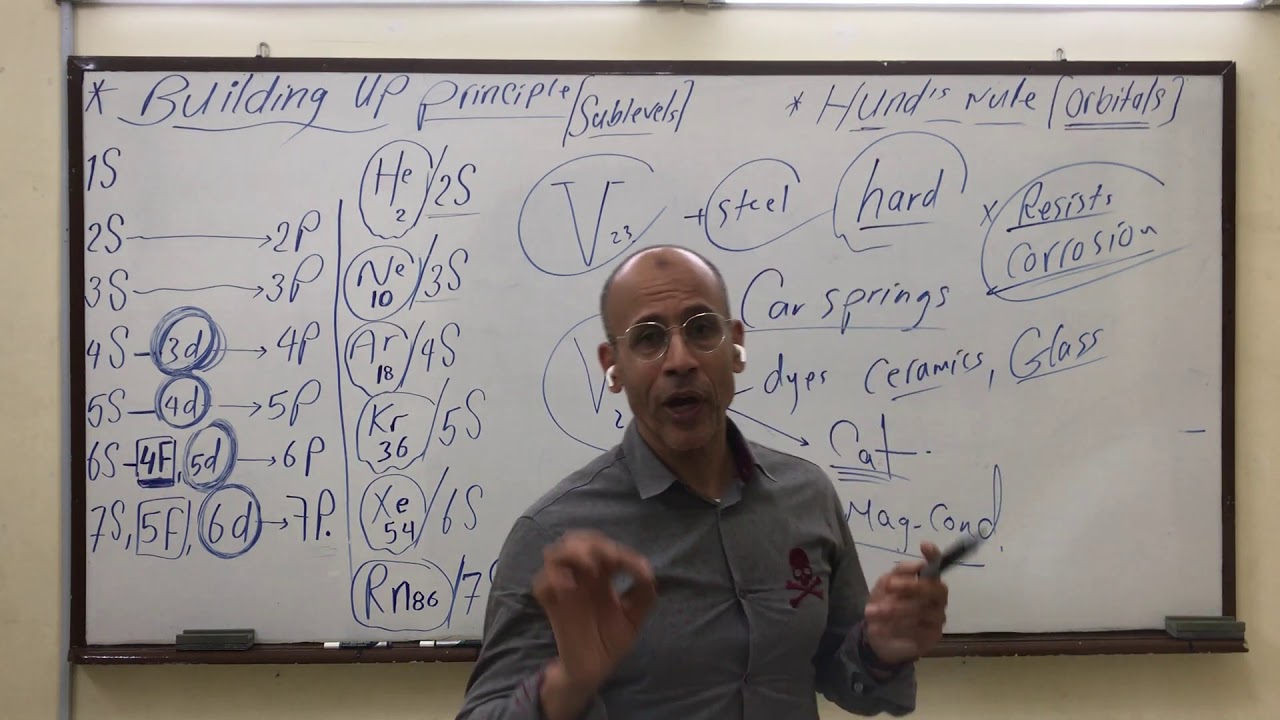 * Building Up principle [Sublevels]
* Hund's Rule [Orbitals]
1S
2S → 2P
3S → 3P
4S - 3d → 4P
5S - 4d → 5P
6S - 4F, 5d → 6P
7S, 5F, 6d → 7P.
He 2 / 2S
Ne 10 / 3S
Ar 18 / 4S
Kr 36 / 5S
Xe 54 / 6S
Rn 86 / 7S
V 23 → steel hard
x Resists
Corrosion
Car springs
V 2
- dyes Ceramics, Glass
Cat.
Mag-Cond.